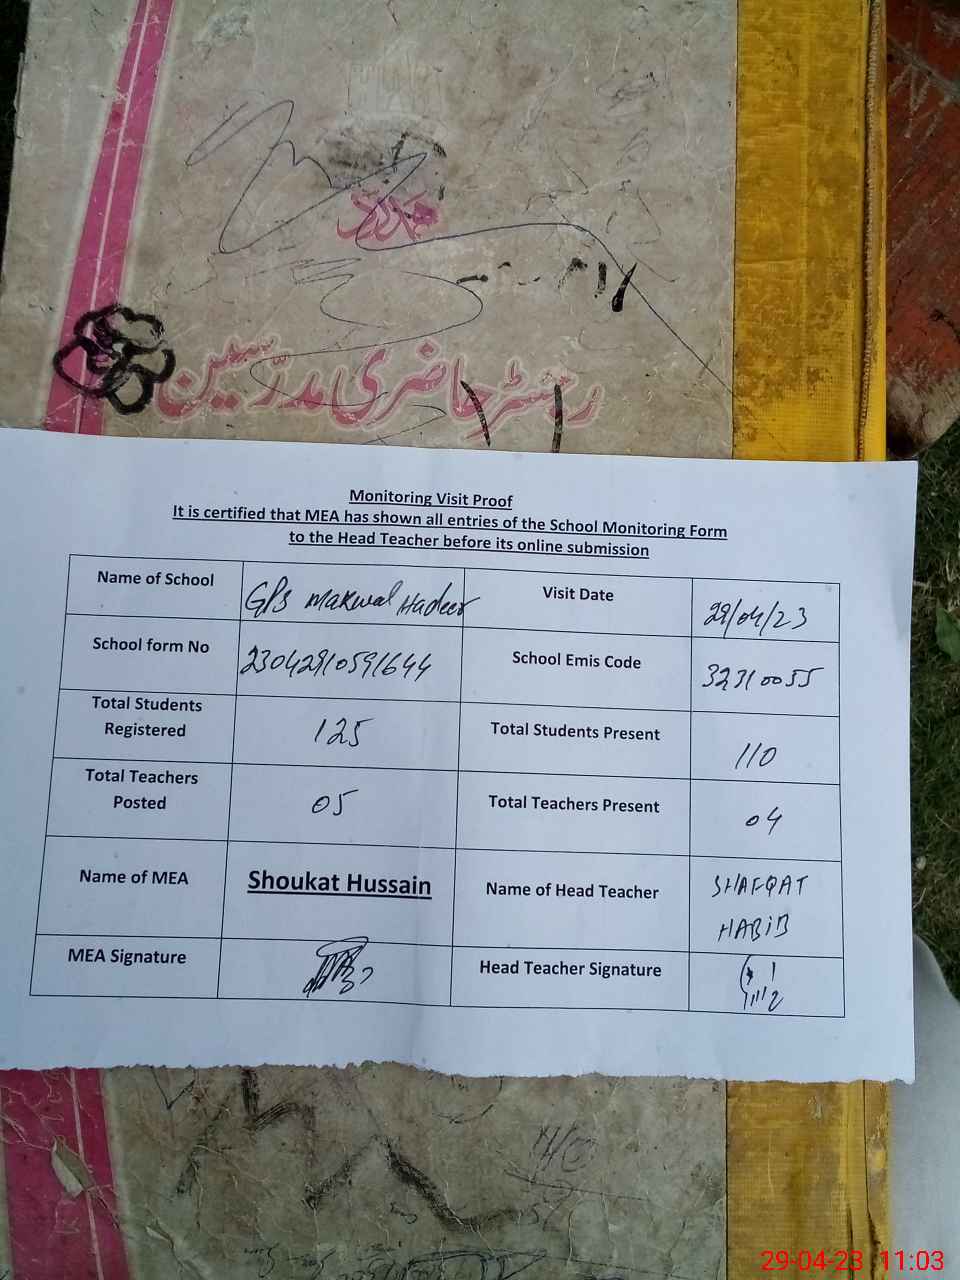 ہمدرد
رجسٹر حاضری مدرسین
Monitoring Visit Proof
It is certified that MEA has shown all entries of the School Monitoring Form
to the Head Teacher before its online submission
Name of School GPS Makwal Hadeer Visit Date 29/04/23
School form No 23042910591644 School Emis Code 32310055
Total Students Registered 125 Total Students Present 110
Total Teachers Posted 05 Total Teachers Present 04
Name of MEA Shoukat Hussain Name of Head Teacher SHAFQAT HABIB
MEA Signature Head Teacher Signature
29-04-23 11:03